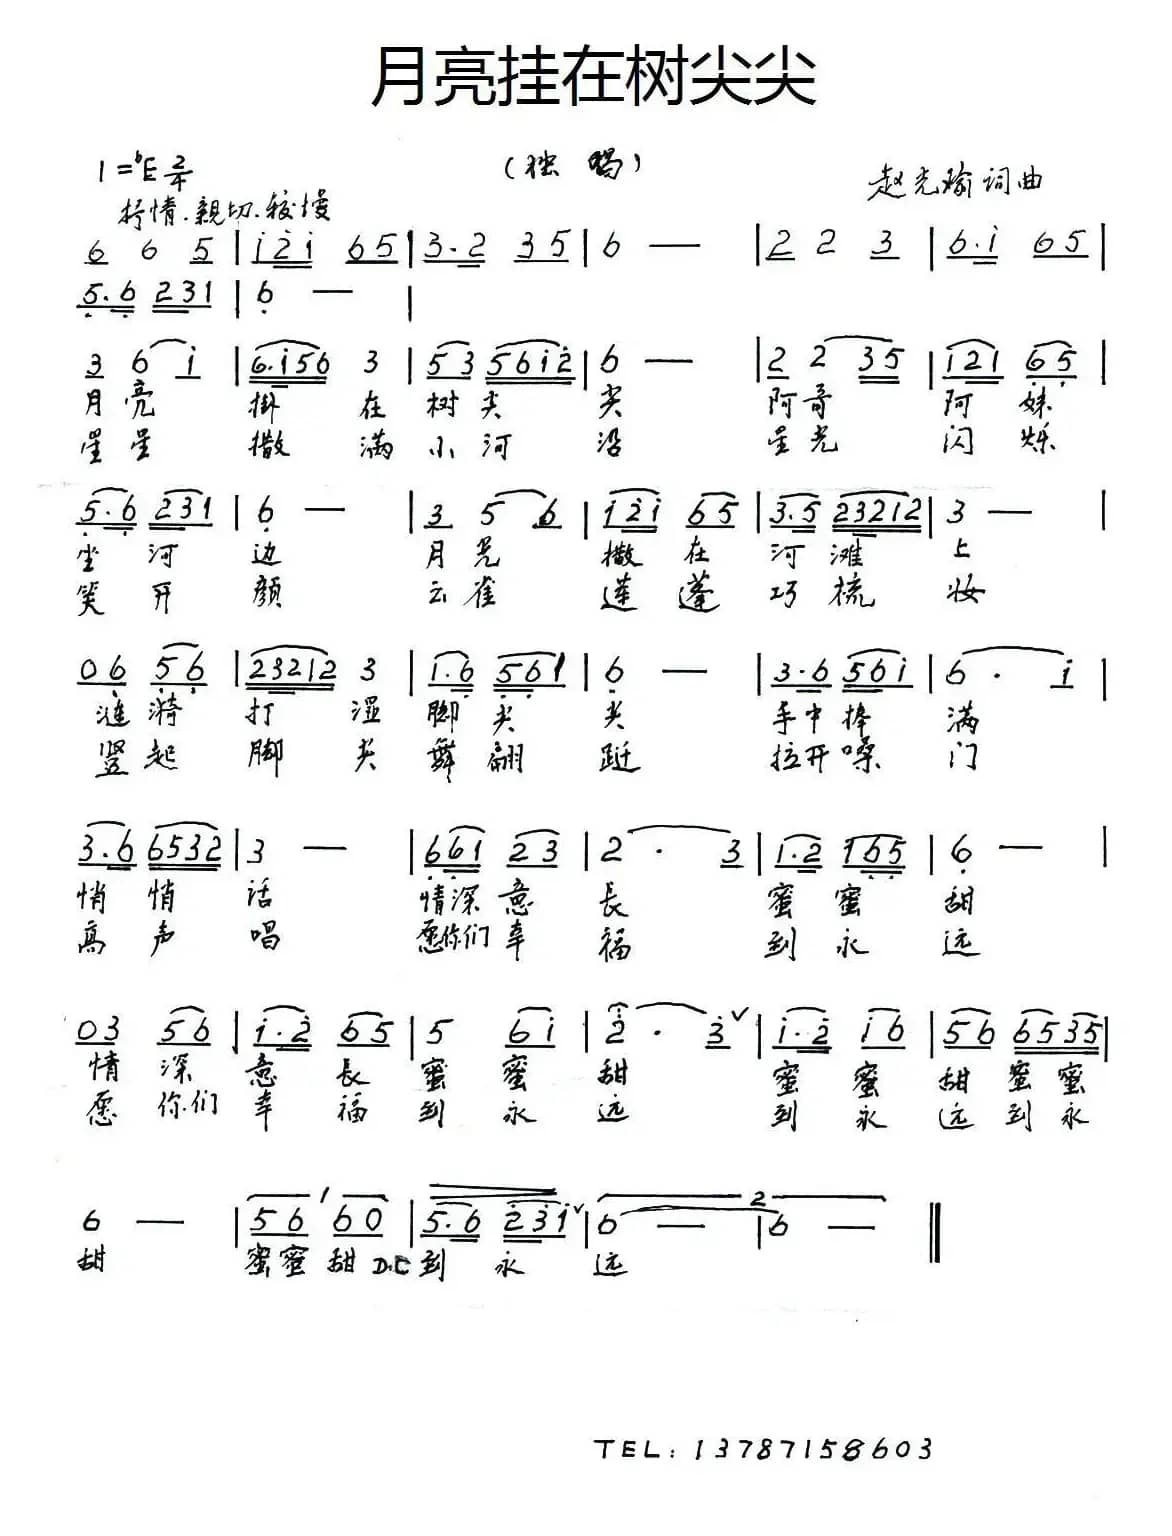 月亮挂在树尖尖
1=bE 2/4
（独 唱）
赵光瑜 词曲
抒情.親切.较慢
6 6 5 | i 2 i 6 5 | 3·2 3 5 | 6 — | 2 2 3 | 6·i 6 5 |
5·6 2 3 1 | 6 — |
3 6 i | 6·i 5 6 3 | 5 3 5 6 i 2 | 6 — | 2 2 3 5 | i 2 1 6 5 |
月 亮 掛 在 树 尖 尖 阿 哥 阿 妹
星 星 撒 满 小 河 沿 星 光 闪 烁
5·6 2 3 1 | 6 — | 3 5 6 | i 2 i 6 5 | 3·5 2 3 2 1 2 | 3 — |
坐 河 边 月 光 撒 在 河 滩 上
笑 开 颜 云 雀 莲 蓬 巧 梳 妆
0 6 5 6 | 2 3 2 1 2 3 | 1·6 5 6 1 | 6 — | 3·6 5 6 i | 6 · i |
涟 漪 打 湿 脚 尖 尖 手 中 捧 满
竖 起 脚 尖 舞 翩 跹 拉 开 嗓 门
3·6 6 5 3 2 | 3 — | 6 6 1 2 3 | 2 · 3 | 1·2 1 6 5 | 6 — |
悄 悄 话 情 深 意 長 蜜 蜜 甜
高 声 唱 愿 你 们 幸 福 到 永 远
0 3 5 6 | i·2 6 5 | 5 6 i | 2 · 3 ∨ | i·2 i 6 | 5 6 6 5 3 5 |
情 深 意 長 蜜 蜜 甜 蜜 蜜 甜 蜜 蜜
愿 你 们 幸 福 到 永 远 到 永 远 到 永
6 — | 1 5 6 6 0 | 5·6 2 3 i ∨ | 2 6 — | 6 — ‖
甜 蜜 蜜 甜 D.C 到 永 远
TEL: 13787158603